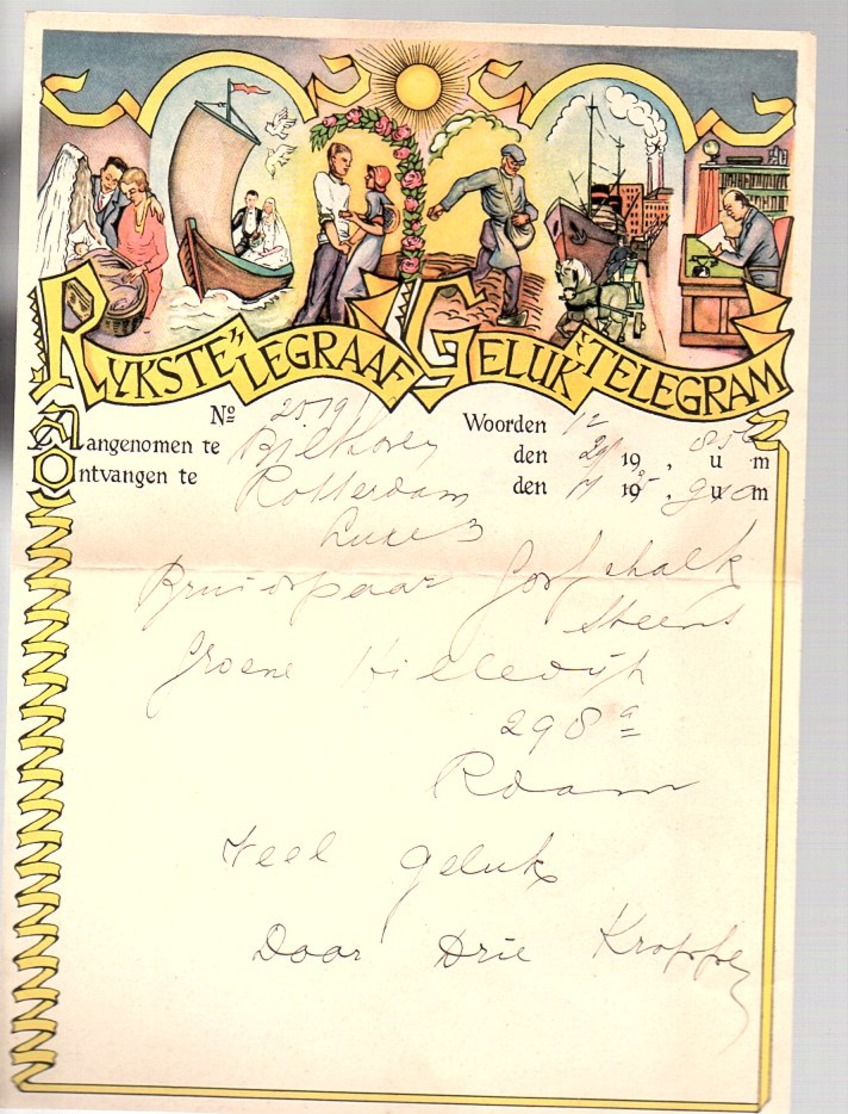 RYKSTELEGRAAF GELUK-TELEGRAM
No 2519 Woorden 12
Aangenomen te Bilthoven den 19 , 850 u m
Ontvangen te Rotterdam den 19 , u m
Luxe 3
Bruidspaar
Steens
Groene Hilledijk
298a
Rdam
Veel geluk
Daar Drie